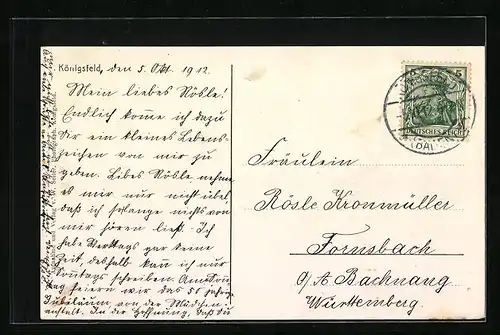 Königsfeld, den 5. Okt. 1912.
Mein liebes Rösle!
Endlich komme ich dazu
Dir ein kleines Lebens-
zeichen von mir zu
geben. Libes Rösle nehme
es mir nur nicht übel,
daß ich solange nichts von
mir hören ließ. Ich
habe Werktags gar keine
Zeit, deshalb kan ich nur
Sonntags schreiben. Am
feiern wir das 55 jährige
Jubiläum von der Mädchen-
anstalt. In der Hoffnung, daß du
5
DEUTSCHES REICH
(BADEN)
Fräulein
Rösle Kronmüller
Fornsbach
O/A. Backnang
Württemberg.